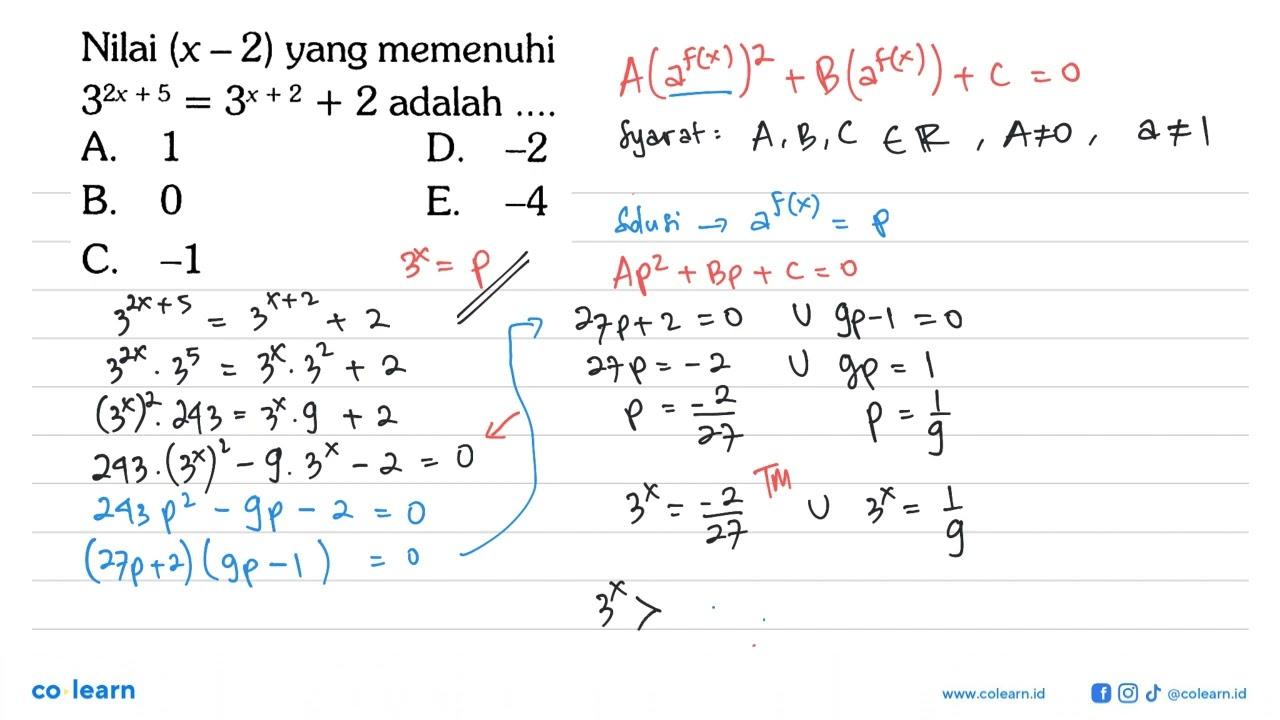 Nilai (x – 2) yang memenuhi
3^{2x + 5} = 3^{x + 2} + 2 adalah ....
A. 1
B. 0
C. –1
D. –2
E. –4
3^x = p
3^{2x+5} = 3^{x+2} + 2
3^{2x} . 3^5 = 3^x . 3^2 + 2
(3^x)^2 . 243 = 3^x . 9 + 2
243 . (3^x)^2 - 9 . 3^x - 2 = 0
243p^2 - 9p - 2 = 0
(27p+2)(9p-1) = 0
A(a^{f(x)})^2 + B(a^{f(x)}) + C = 0
Syarat: A, B, C ∈ R, A≠0, a≠1
Solusi → a^{f(x)} = p
Ap^2 + Bp + C = 0
27p+2 = 0 ∪ 9p-1 = 0
27p = -2 ∪ 9p = 1
p = -2/27 p = 1/9
3^x = -2/27 TM ∪ 3^x = 1/9
3^x >
co learn
www.colearn.id
@colearn.id